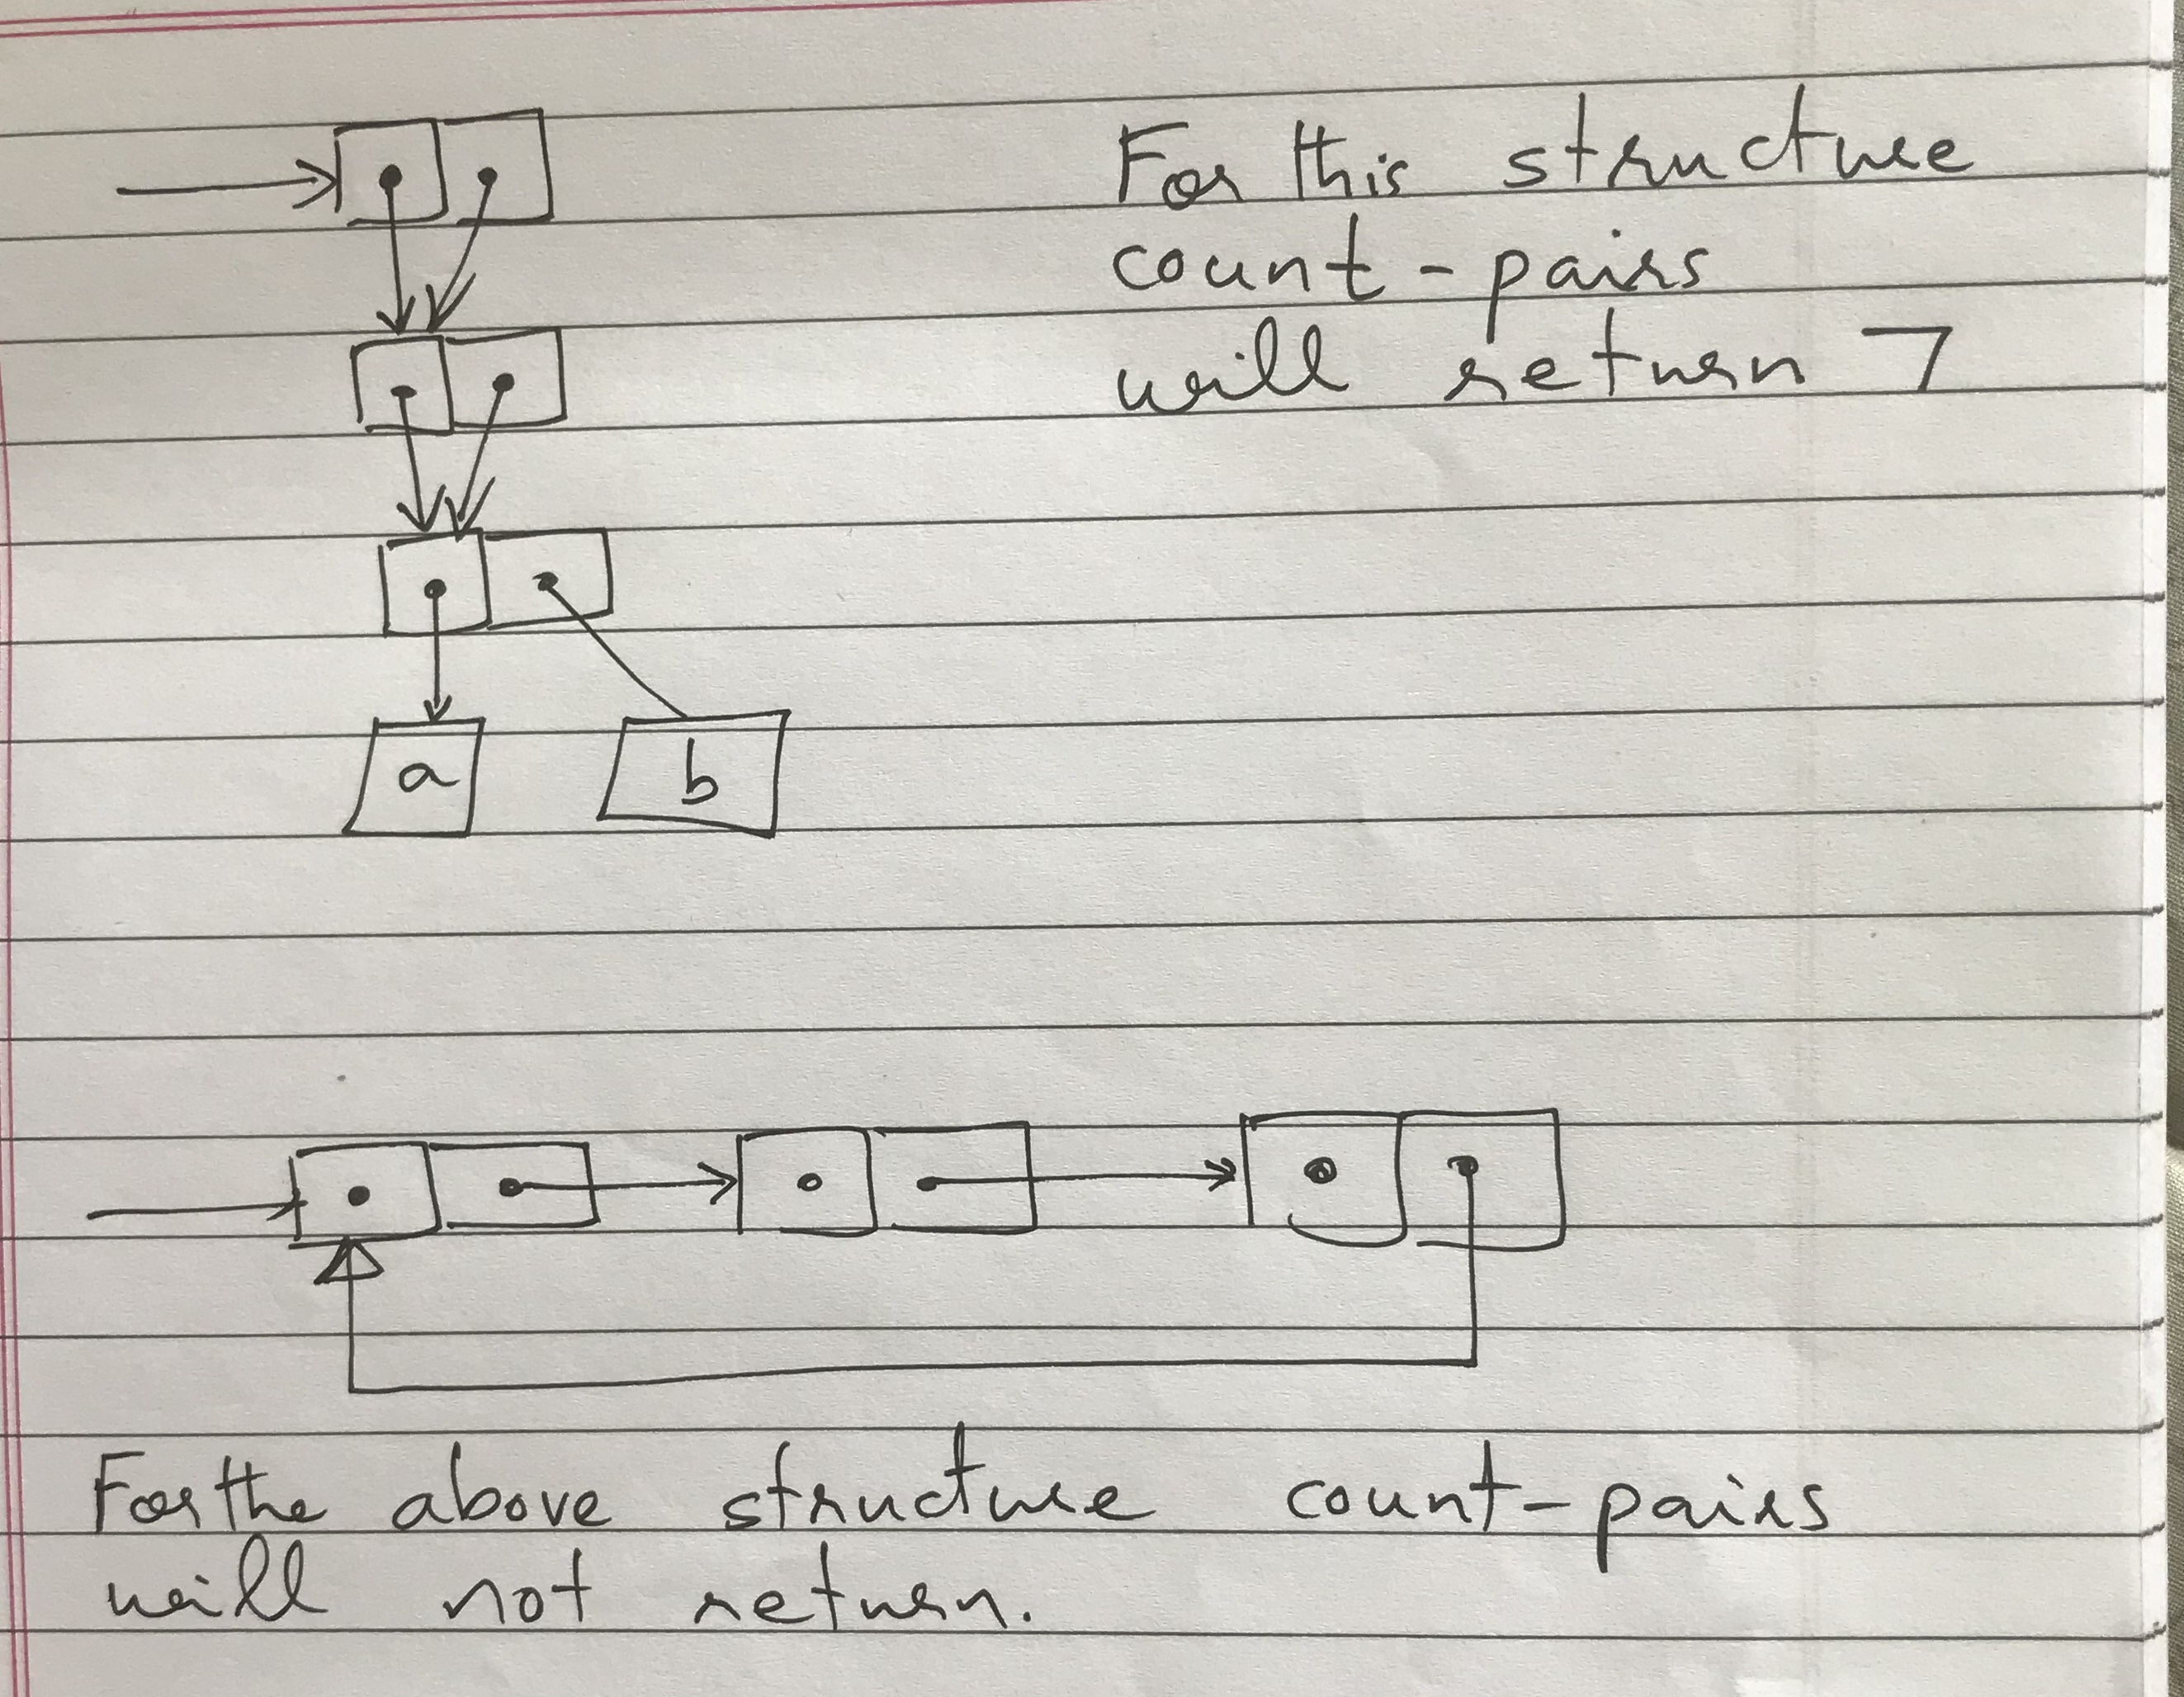 For this structure
count - pairs
will return 7
a
b
For the above structure count-pairs
will not return.